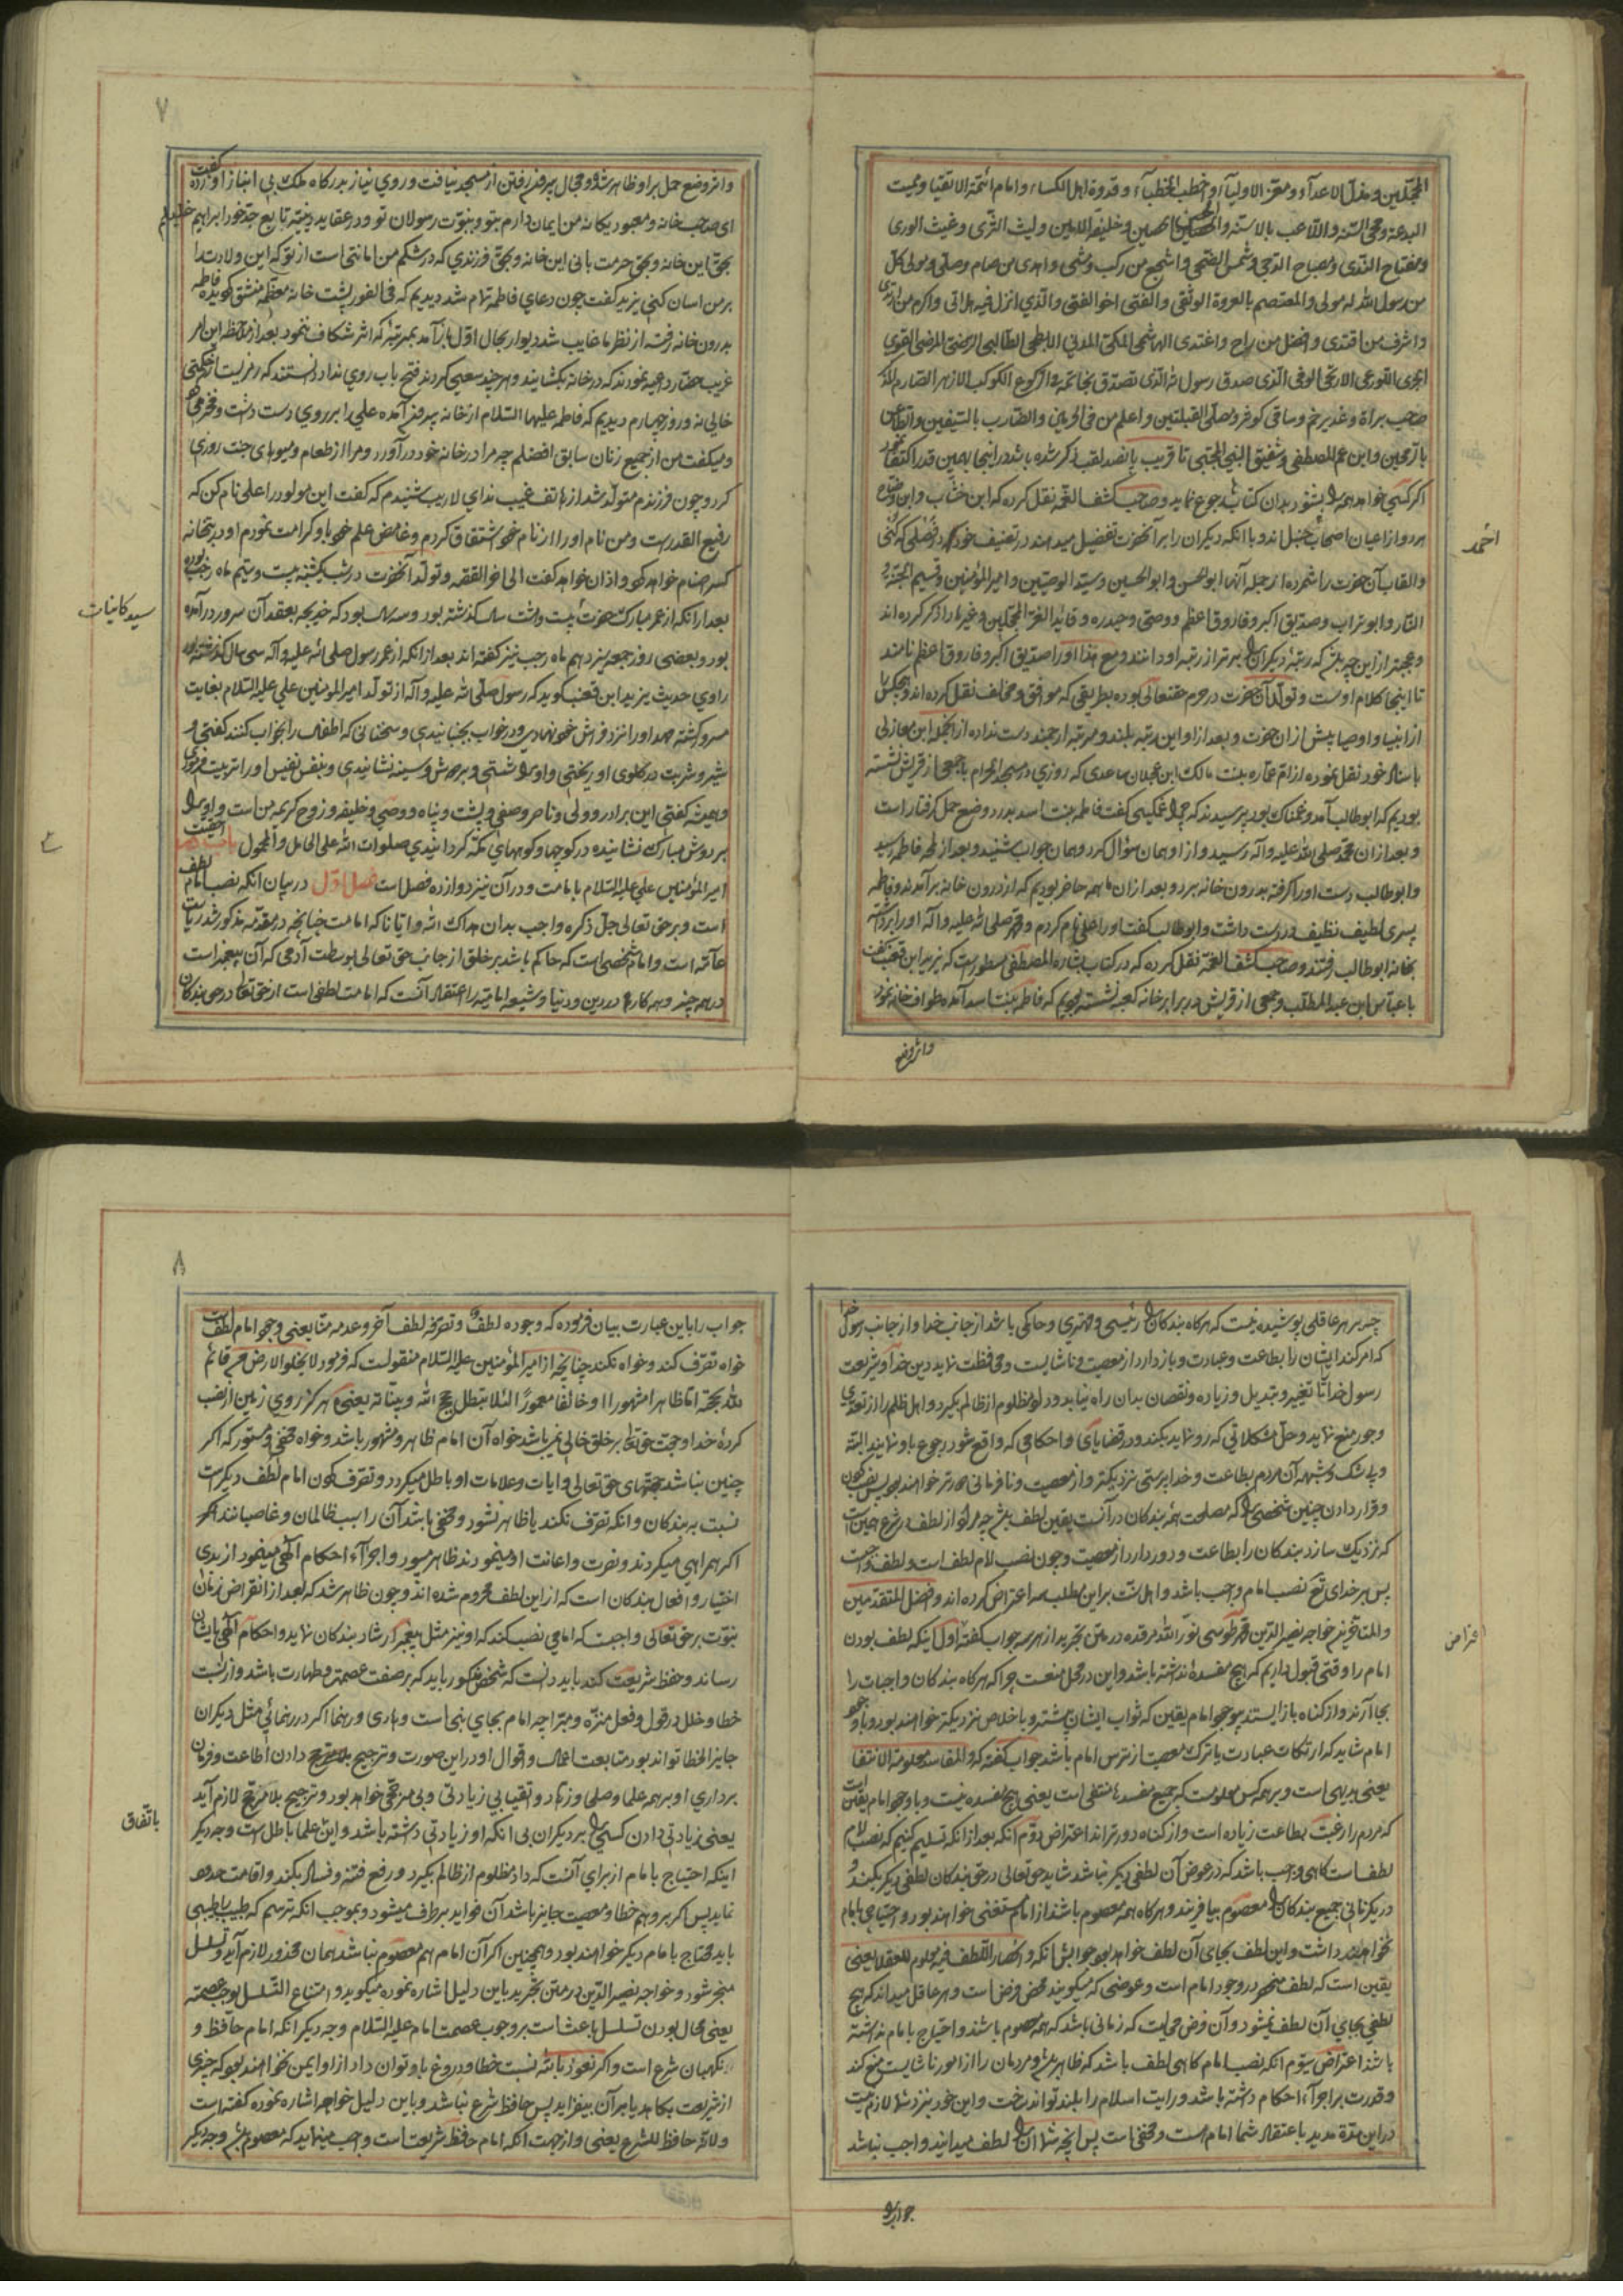 المحجلین و مذل الاعداء و معز الاولیاء و اخطب الخطباء و قدوة اهل الکساء و امام ائمة الاتقیاء و ممیت
البدعة و محی السنة و اللاعب بالاسنة و الحصن الحصین و خلیفة الامین و لیث الثری و غیث الوری
و مفتاح الندی و مصباح الدجی و شمس الضحی و اشجع من رکب و مشی و اهدی من صام و صلی و مولی کل
من رسول الله له مولی و المعتصم بالعروة الوثقی و الفتی اخو الفتی و الذی انزل فیه هل اتی و اکرم من ارتدی
و اشرف من اقتدی و افضل من راح و اغتدی الهاشمی المکی المدنی الابطحی الطالبی الرضی المرضی القوی
الجری اللوذعی الاریحی الوفی الذی صدق رسول الله الذی تصدق بخاتمه فی الرکوع الکوکب الازهر الصارم الذکر
صاحب براة و غدیر خم و ساقی کوثر و مصلی القبلتین و اعلم من فی الحرمین و الضارب بالسیفین و الطاعن
بالرمحین و ابن عم المصطفی و شقیق النبی المجتبی تا قریب پانصد لقب ذکر شده باشد در اینجا بهمین قدر اکتفا نمود
اگر کسی خواهد همه را بشنود بدان کتاب رجوع نماید و صاحب کشف الغمه نقل کرده که ابن خشاب و ابن وضاح
هر دو از اعیان اصحاب حنبل‌اند و با آنکه دیگران را بر آنحضرت تفضیل میدهند در تصنیف خود در فضلی که کنی
احمد
و القاب آن حضرت را شمرده از جمله آنها ابو الحسن و ابو الحسین و سید الوصیین و امیر المؤمنین و قسیم الجنة و
النار و ابو تراب و صدیق اکبر و فاروق اعظم و وصی و حیدره و قاید الغر المحجلین و غیرها را ذکر کرده اند
و عجبتر از این چه باشد که رتبه دیگران را برتر از رتبه او دانند و مع هذا او را صدیق اکبر و فاروق اعظم نامند
تا اینجا کلام اوست و تولد آن حضرت در حرم حقتعالی بوده بطریقی که موافق و مخالف نقل کرده اند و هیچکس را
از انبیا و اوصیا پیش از ان حضرت و بعد از او این رتبه بلند و مرتبه ارجمند دست نداده از آنجمله ابن مغازلی
باسناد خود نقل نموده از ام عماره بنت مالک ابن عجلان ساعدی که روزی در مسجد الحرام با جمعی از قریش نشسته
بودیم که ابو طالب آمد و غمناک بود پرسیدند که چرا غمگینی گفت فاطمه بنت اسد بدرد وضع حمل گرفتار است
و بعد از ان محمد صلی الله علیه و آله رسید و از او همان سؤال کرد و همان جواب شنید و بعد از لمحه فاطمه رسید
و ابو طالب دست او را گرفته بدرون خانه برد و بعد از ان ما همه حاضر بودیم که از درون خانه برآمدند و فاطمه
پسری لطیف نظیف در دست داشت و ابو طالب گفت او را علی نام کردم و محمد صلی الله علیه و آله او را برداشته
بخانه ابو طالب رفتند و صاحب کشف الغمه نقل کرده که در کتاب بشارة المصطفی مسطور است که یزید ابن قعنب گفت
با عباس ابن عبد المطلب و جمعی از قریش در برابر خانه کعبه نشسته بودیم که فاطمه بنت اسد آمده طواف خانه نمود
و اثر وضع
۷
و اثر وضع حمل بر او ظاهر شد و مجال بیرون رفتن از مسجد نیافت و روی نیاز بدرگاه ملک بی انباز آورده گفت
ای صاحب خانه و معبود یگانه من ایمان دارم بتو و بنبوت رسولان تو و در عقاید دینیه تابع جد خود ابراهیم خلیلم
بحق این خانه و بحق حرمت بانی این خانه و بحق فرزندی که در شکم من امانتی است از تو که این ولادت را
بر من اسان کنی یزید گفت چون دعای فاطمه تمام شد دیدیم که فی الفور پشت خانه معظمه منشق گردیده فاطمه
بدرون خانه رفته از نظر ما غایب شد دیوار بحال اول باز آمد بمرتبه که اثر شکاف ننمود بعد از ملاحظه این امر
غریب حضار داعیه نمودند که در خانه بگشایند و هر چند سعی کردند فتح باب روی نداد دانستند که رمزیست از حکمتی
خالی نه و روز چهارم دیدیم که فاطمه علیها السلام از خانه بیرون آمده علی را بر روی دست داشت و فخر می کرد
و میگفت من از جمیع زنان سابق افضلم چه مرا در خانه خود در آورد و مرا از طعام و میوهای جنت روزی
کرد و چون فرزندم متولد شد از هاتف غیب ندای لاریب شنیدم که گفت این مولود را علی نام کن که
رفیع القدر است و من نام او را از نام خود اشتقاق کردم و غامض علم خود باو کرامت نمودم او در بتخانه
کسر اصنام خواهد کرد و اذان خواهد گفت الی اخر القصه و تولد آنحضرت در شب یکشنبه بیست و سیم ماه رجب بوده
سید کاینات
بعد از آنکه از عمر مبارک حضرت بیست و هشت سال گذشته بود و سه سال بود که خدیجه بعقد آن سرور در آمده
بود و بعضی روز جمعه سیزدهم ماه رجب نیز گفته اند بعد از آنکه از عمر رسول صلی الله علیه و آله سی سال گذشته بود
راوی حدیث یزید ابن قعنب گوید که رسول صلی الله علیه و آله از تولد امیر المؤمنین علی علیه السلام بغایت
مسرور گشته مهد او را نزد فراش خود نهادی و در خواب بجنبانیدی و سخنانی که اطفال را بخواب کنند گفتی و
شیر و شربت در گلوی او ریختی و او را شستی و بر دوش و سینه نشانیدی و بنفس نفیس او را تربیت فرمودی
و همیشه گفتی این برادر و ولی و ناصر و صفی و پشت و پناه و وصی و خلیفه و زوج کریمه من است و او را
بر دوش مبارک نشانیده در کوچها و کوههای مکه گردانیدی صلوات الله علی الحامل و المحمول
امیر المؤمنین علی علیه السلام بامامت و در آن نیز دوازده فصل است فصل اول در بیان آنکه نصب امام لطف
است و بر حق تعالی جل ذکره واجب بدان هداک الله و ایانا که امامت چنانچه در مقدمه مذکور شد ریاست
عامه است و امام شخصی است که حاکم باشد بر خلق از جانب حق تعالی بوساطت آدمی که آن پیغمبر است
در همه چیز و همه کارها در دین و دنیا و شیعه امامیه را اعتقاد آنست که امامت لطفی است از حق تعالی در حق بندگان
چه بر هر عاقلی پوشیده نیست که هرگاه بندگان را رئیسی و مهتری و حاکمی باشد از جانب خدا و از جانب رسول خدا
که امر کند ایشان را بطاعت و عبادت و باز دارد از معصیت و ناشایست و محافظت نماید دین خدا و شریعت
رسول خدا را تا تغییر و تبدیل و زیاده و نقصان بدان راه نیابد و داد مظلوم از ظالم بگیرد و اهل ظلم را از تعدی
و جور منع نماید و حل مشکلاتی که رو نماید بکند و در قضایای و احکامی که واقع شود رجوع باو نمایند البته
و بی شک و شبهه آن مردم بطاعت و خدا پرستی نزدیکتر و از معصیت و نافرمانی دورتر خواهند بود پس نصب کردن
و قرار دادن چنین شخصی را که مصلحت همه بندگان در آنست یقین لطف باشد چه مراد از لطف در شرع همین است
که نزدیک سازد بندگان را بطاعت و دور دارد از معصیت و چون نصب امام لطف است و لطف واجب
پس بر خدای تع نصب امام واجب باشد و اهل سنت بر این مطلب سه اعتراض کرده اند و افضل المتقدمین
اعتراض
و المتاخرین خواجه نصیر الدین محمد طوسی نور الله مرقده در متن تجرید از هر سه جواب گفته اول اینکه لطف بودن
امام را وقتی قبول داریم که هیچ مفسده نداشته باشد و این در محل منعست چرا که هرگاه بندگان واجبات را
بجا آرند و از گناه باز ایستند بیوجود امام یقین که ثواب ایشان بیشتر و باخلاص نزدیکتر خواهند بود و با وجود
امام شاید که ارتکاب عبادت یا ترک معصیت از ترس امام باشد جواب گفته که و المفاسد معلومة الانتفا
یعنی بدیهی است و بر همه کس معلومست که جمیع مفسده ها منتفی است یعنی هیچ مفسده نیست و با وجود امام یقین است
که مردم را رغبت بطاعت زیاده است و از گناه دورتراند اعتراض دوم آنکه بعد از آنکه تسلیم کنیم که نصب امام
لطف است گاهی واجب باشد که در عوض آن لطفی دیگر نباشد شاید حق تعالی در حق بندگان لطفی دیگر بکند و
در یکزمانی جمیع بندگان را معصوم بیافریند و هرگاه همه معصوم باشند از امام مستغنی خواهند بود و احتیاجی بامام
نخواهند داشت و این لطف بجای آن لطف خواهد بود جوابش آنکه و انحصار اللطف فیه معلوم للعقلا یعنی
یقین است که لطف منحصر در وجود امام است و عوضی که میگویند محض فرض است و هر عاقل میداند که هیچ
لطفی بجای آن لطف نمیشود و آن فرض محالیست که زمانی باشد که همه معصوم باشند و احتیاج بامام نداشته
باشند اعتراض سیوم آنکه نصب امام گاهی لطف باشد که ظاهر باشد و مردمان را از امور ناشایست منع کند
و قدرت بر اجرآء احکام داشته باشد و رایت اسلام را بلند تواند ساخت و این خود نزد شما لازم نیست
در این مدة مدید باعتقاد شما امام هست و مخفی است پس آنچه شما آن را لطف میدانید واجب نباشد
جواب را
۸
جواب را باین عبارت بیان فرموده که وجوده لطف و تصرفه لطف آخر و عدمه منا یعنی وجود امام لطف است
خواه تصرف کند و خواه نکند چنانچه از امیر المؤمنین علیه السلام منقولست که فرمود لا یخلو الارض من قائم
لله بحجة اما ظاهرا مشهورا او خائفا مغمورا لئلا تبطل حجج الله و بیناته یعنی هرگز روی زمین از نصب
کردۀ خدا و حجت حق تعا بر خلق خالی نمی باشد خواه آن امام ظاهر و مشهور باشد و خواه مخفی و مستور که اگر
چنین نباشد حجتهای حق تعالی و ایات و علامات او باطل میگردد و تصرف کردن امام لطف دیگر است
نسبت به بندگان و آنکه تصرف نکند یا ظاهر نشود و مخفی باشد آن را سبب ظالمان و غاصبانند که
اگر همراهی میکردند و نصرت و اعانت او مینمودند ظاهر میبود و اجرآء احکام الهی مینمود از بدی
اختیار و افعال بندگان است که از این لطف محروم شده اند و چون ظاهر شد که بعد از انقراض زمان
نبوت بر حق تعالی واجبست که امامی نصب کند که او نیز مثل پیغمبر ارشاد بندگان نماید و احکام الهی بایشان
رساند و حفظ شریعت کند باید دانست که شخص مذکور باید که بر صفت عصمت و طهارت باشد و از نسبت
خطا و خلل در قول و فعل منزه و مبرا چه امام بجای نبی است و هادی و رهنما اگر در رهنمائی مثل دیگران
جایز الخطا تواند بود متابعت اعمال و اقوال او در این صورت و ترجیح بلا مرجح دادن اطاعت و فرمان
برداری او بر همه علما و صلحا و زهاد و اتقیا بی زیادتی و بی مرجحی خواهد بود و ترجیح بلا مرجح لازم آید
باتفاق
یعنی زیادتی دادن کسی را بر دیگران بی آنکه او زیادتی داشته باشد و این علما باطل است وجه دیگر
اینکه احتیاج بامام از برای آنست که داد مظلوم از ظالم بگیرد و رفع فتنه و فساد بکند و اقامت حدود
نماید پس اگر بر او هم خطا و معصیت جایز باشد آن فواید برطرف میشود و بموجب آنکه ترسم که طبیب با طبیبی
باید محتاج بامام دیگر خواهند بود و همچنین اگر آن امام هم معصوم نباشد همان محذور لازم آید و تسلسل
منجر شود و خواجه نصیر الدین در متن تجرید باین دلیل اشاره نموده میگوید و امتناع التسلسل یوجب عصمته
یعنی محال بودن تسلسل باعث است بر وجوب عصمت امام علیه السلام وجه دیگر آنکه امام حافظ و
نگهبان شرع است و اگر نعوذ بالله نسبت خطا و دروغ باو توان داد از او ایمن نخواهند بود که چیزی
از شریعت بکاهد یا بر آن بیفزاید پس حافظ شرع نباشد و باین دلیل خواجه اشاره نموده گفته است
و لانه حافظ للشرع یعنی و از جهت آنکه امام حافظ شریعت است واجب مینماید که معصوم باشد وجه دیگر